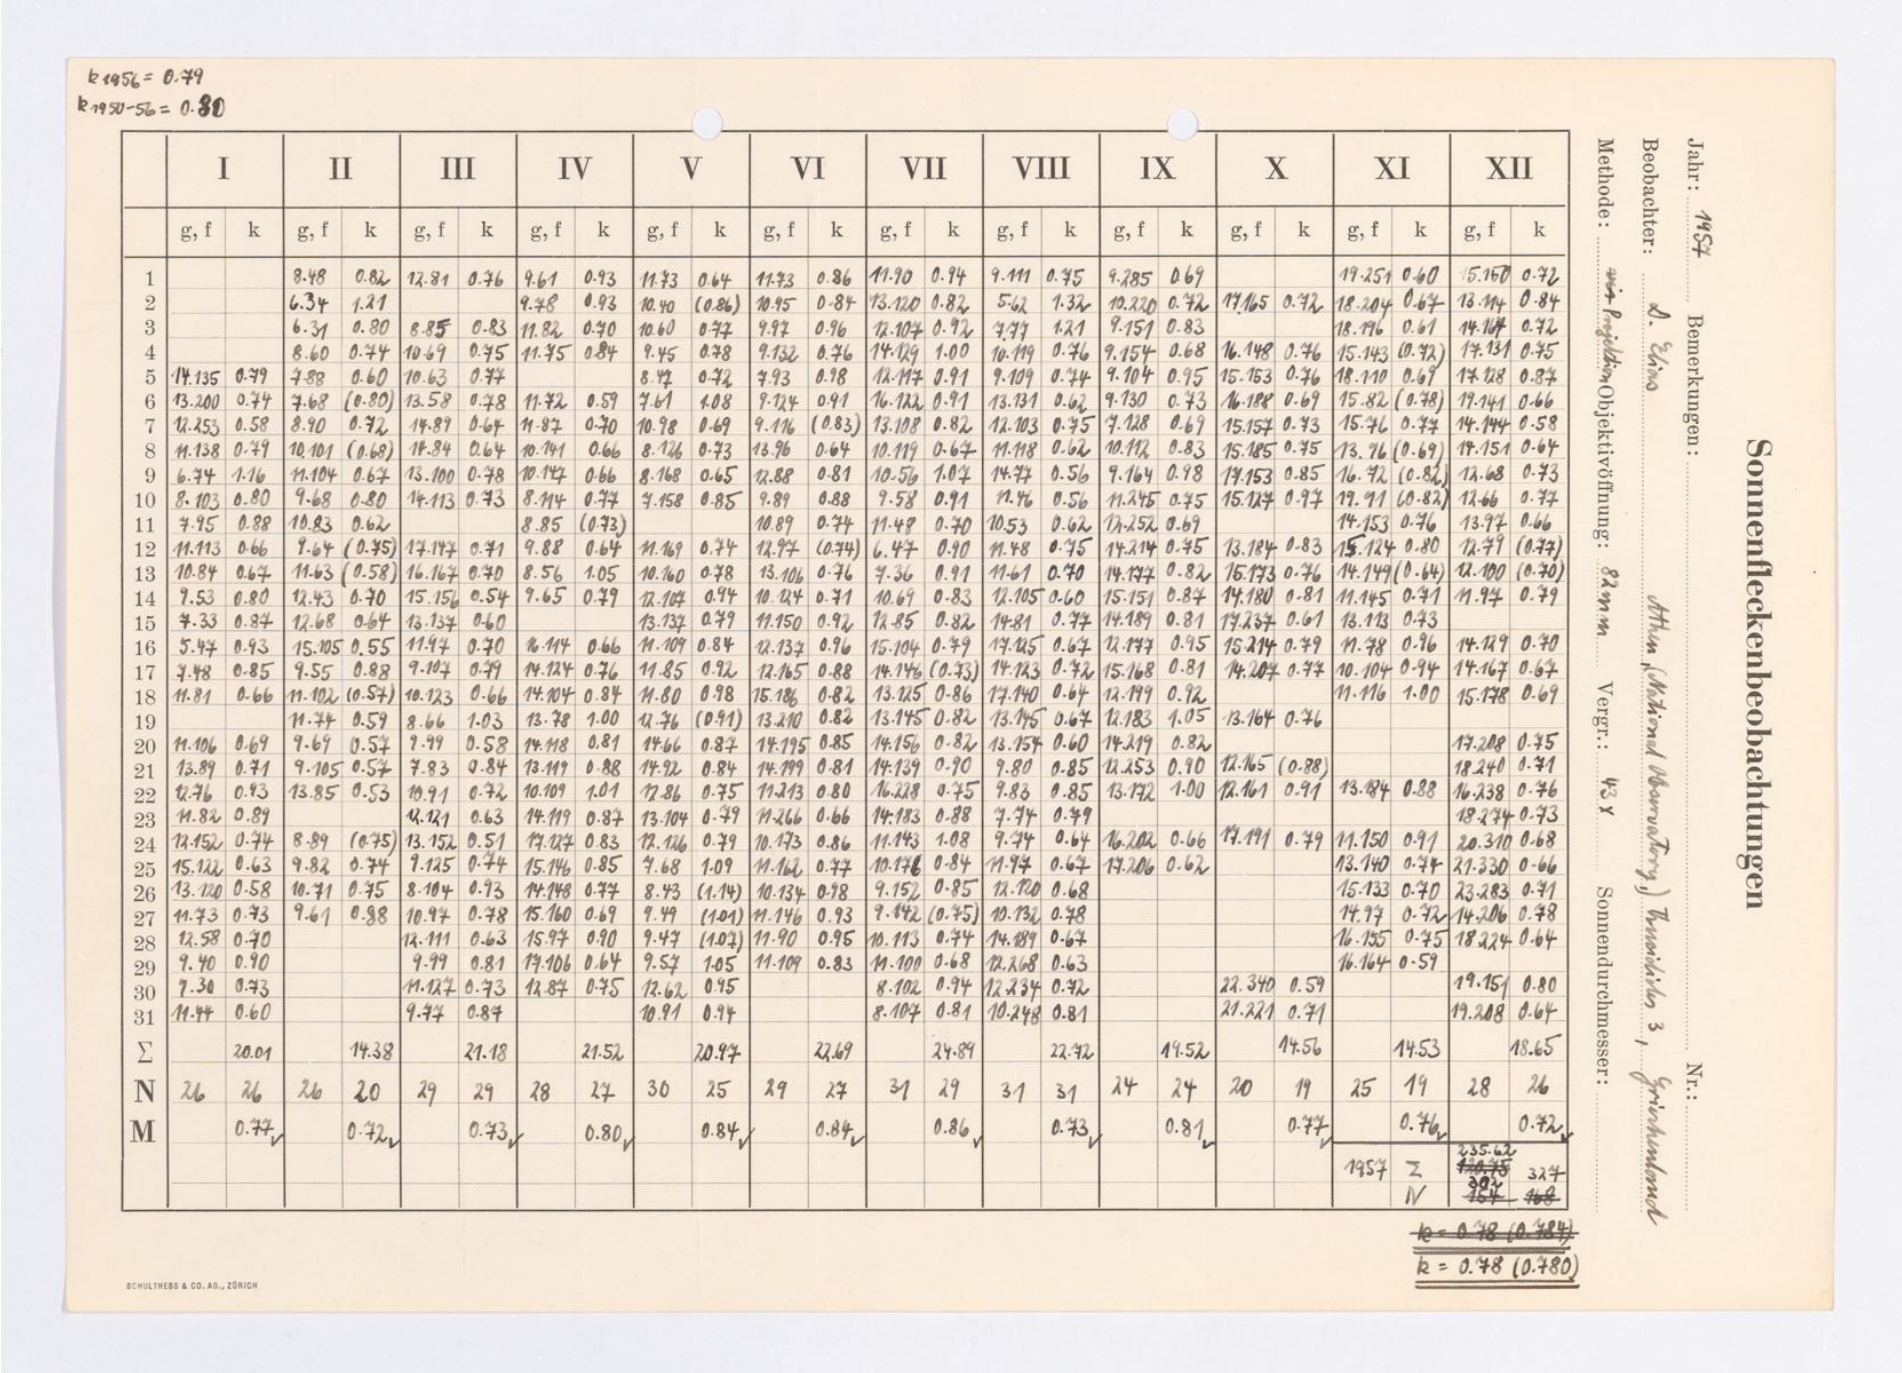 k 1956 = 0.79
k 1950-56 = 0.80
Sonnenfleckenbeobachtungen
Jahr: 1957 Bemerkungen: Nr.:
Beobachter: D. Elias Athen, (National Observatory,) Thusidides 3, Griechenland
Methode: Projektion Objektivöffnung: 82mm Vergr.: 43 x Sonnendurchmesser:
I II III IV V VI VII VIII IX X XI XII
g, f k g, f k g, f k g, f k g, f k g, f k g, f k g, f k g, f k g, f k g, f k g, f k
1 8.48 0.82 12.81 0.76 9.61 0.93 11.73 0.64 11.73 0.86 11.90 0.94 9.111 0.75 9.285 0.69 19.251 0.60 15.150 0.72
2 6.34 1.21 9.78 0.93 10.40 (0.86) 10.95 0.84 13.120 0.82 5.62 1.32 10.220 0.72 17.165 0.72 18.204 0.67 13.114 0.84
3 6.31 0.80 8.85 0.83 11.82 0.70 10.60 0.77 9.97 0.96 12.107 0.92 7.77 1.21 9.151 0.83 18.196 0.61 14.164 0.72
4 8.60 0.74 10.69 0.75 11.75 0.84 9.45 0.78 9.132 0.76 14.129 1.00 10.119 0.76 9.154 0.68 16.148 0.76 15.143 (0.72) 17.131 0.75
5 14.135 0.79 7.88 0.60 10.63 0.77 8.47 0.72 7.93 0.98 12.117 0.91 9.109 0.74 9.104 0.95 15.153 0.76 18.110 0.69 17.128 0.87
6 13.200 0.74 7.68 (0.80) 13.58 0.78 11.72 0.59 7.61 1.08 9.124 0.91 16.122 0.91 13.131 0.62 9.130 0.73 16.188 0.69 15.82 (0.78) 19.141 0.66
7 12.253 0.58 8.90 0.72 14.89 0.64 11.87 0.70 10.98 0.69 9.116 (0.83) 13.108 0.82 12.103 0.75 7.128 0.69 15.157 0.73 15.76 0.77 14.144 0.58
8 11.138 0.79 10.101 (0.68) 14.84 0.64 10.141 0.66 8.126 0.73 13.96 0.64 10.119 0.67 11.118 0.62 10.112 0.83 15.185 0.75 13.96 (0.69) 14.151 0.64
9 6.74 1.16 11.104 0.67 13.100 0.78 10.147 0.66 8.168 0.65 12.88 0.81 10.56 1.07 14.77 0.56 9.164 0.98 17.153 0.85 16.92 (0.82) 12.68 0.73
10 8.103 0.80 9.68 0.80 14.113 0.73 8.114 0.77 7.158 0.85 9.89 0.88 9.58 0.91 11.76 0.56 11.245 0.75 15.127 0.97 19.91 (0.82) 12.66 0.77
11 7.95 0.88 10.83 0.62 8.85 (0.73) 10.89 0.74 11.48 0.70 10.53 0.62 12.252 0.69 14.153 0.76 13.97 0.66
12 11.113 0.66 9.64 (0.75) 17.147 0.71 9.88 0.64 11.169 0.74 12.97 (0.74) 6.47 0.90 11.48 0.75 14.214 0.75 13.184 0.83 15.124 0.80 12.79 (0.77)
13 10.84 0.67 11.63 (0.58) 16.167 0.70 8.56 1.05 10.160 0.78 13.106 0.76 7.36 0.91 11.61 0.70 14.177 0.82 15.173 0.76 14.149 (0.64) 12.100 (0.70)
14 9.53 0.80 12.43 0.70 15.156 0.54 9.65 0.79 12.107 0.94 10.124 0.71 10.69 0.83 12.105 0.60 15.151 0.87 14.180 0.81 11.145 0.71 11.97 0.79
15 7.33 0.87 12.68 0.64 13.137 0.60 13.137 0.79 11.150 0.92 12.85 0.82 14.81 0.77 14.189 0.81 17.237 0.61 13.113 0.73
16 5.47 0.93 15.105 0.55 11.97 0.70 16.114 0.66 11.109 0.84 12.137 0.96 15.104 0.79 17.125 0.67 12.177 0.95 15.214 0.79 11.78 0.96 14.129 0.70
17 7.48 0.85 9.55 0.88 9.107 0.79 14.124 0.76 11.85 0.92 12.165 0.88 14.146 (0.73) 14.123 0.72 15.168 0.81 14.207 0.77 10.104 0.94 14.167 0.67
18 11.81 0.66 11.102 (0.57) 10.123 0.66 14.104 0.84 11.80 0.98 15.186 0.82 13.125 0.86 17.140 0.64 12.199 0.92 11.116 1.00 15.178 0.69
19 11.74 0.59 8.66 1.03 13.78 1.00 12.76 (0.91) 13.210 0.82 13.145 0.82 13.145 0.67 12.183 1.05 13.164 0.76
20 11.106 0.69 9.69 0.57 9.99 0.58 14.118 0.81 14.66 0.87 14.195 0.85 14.156 0.82 13.154 0.60 14.219 0.82 17.208 0.75
21 13.89 0.71 9.105 0.57 7.83 0.84 13.119 0.88 14.92 0.84 14.199 0.81 14.139 0.90 9.80 0.85 12.253 0.90 12.165 (0.88) 18.240 0.71
22 12.76 0.93 13.85 0.53 10.91 0.72 10.109 1.01 12.86 0.75 11.213 0.80 16.228 0.75 9.83 0.85 13.172 1.00 12.161 0.91 13.184 0.88 16.238 0.76
23 11.82 0.89 12.121 0.63 14.119 0.87 13.104 0.79 11.266 0.66 14.183 0.88 7.74 0.79 18.274 0.73
24 12.152 0.74 8.89 (0.75) 13.152 0.51 17.127 0.83 12.126 0.79 10.173 0.86 11.143 1.08 9.74 0.64 16.202 0.66 17.191 0.79 11.150 0.91 20.310 0.68
25 15.122 0.63 9.82 0.74 9.125 0.74 15.146 0.85 7.68 1.09 11.162 0.77 10.176 0.84 11.97 0.67 17.206 0.62 13.140 0.74 21.330 0.66
26 13.120 0.58 10.71 0.75 8.104 0.93 14.148 0.77 8.43 (1.14) 10.134 0.98 9.152 0.85 12.120 0.68 15.133 0.70 23.283 0.71
27 11.73 0.73 9.61 0.88 10.97 0.78 15.160 0.69 9.49 (1.01) 11.146 0.93 9.142 (0.75) 10.132 0.78 14.97 0.72 14.206 0.78
28 12.58 0.70 12.111 0.63 15.97 0.90 9.47 (1.07) 11.90 0.95 10.113 0.74 14.189 0.67 16.135 0.75 18.224 0.64
29 9.40 0.90 9.99 0.81 17.106 0.64 9.57 1.05 11.109 0.83 11.100 0.68 12.268 0.63 16.164 0.59
30 7.30 0.73 11.127 0.73 12.87 0.75 12.62 0.95 8.102 0.94 12.234 0.72 22.340 0.59 19.151 0.80
31 11.44 0.60 9.77 0.87 10.91 0.94 8.107 0.81 10.248 0.81 21.221 0.71 19.208 0.64
Σ 20.01 14.38 21.18 21.52 20.97 22.69 24.89 22.72 19.52 14.56 14.53 18.65
N 26 26 26 20 29 29 28 27 30 25 29 27 31 29 31 31 24 24 20 19 25 19 28 26
M 0.77 0.72 0.73 0.80 0.84 0.84 0.86 0.73 0.81 0.77 0.76 0.72
235.62
1957 Σ 327
302
N 154 168
k = 0.78 (0.784)
k = 0.78 (0.780)
SCHULTHESS & CO. AG., ZÜRICH